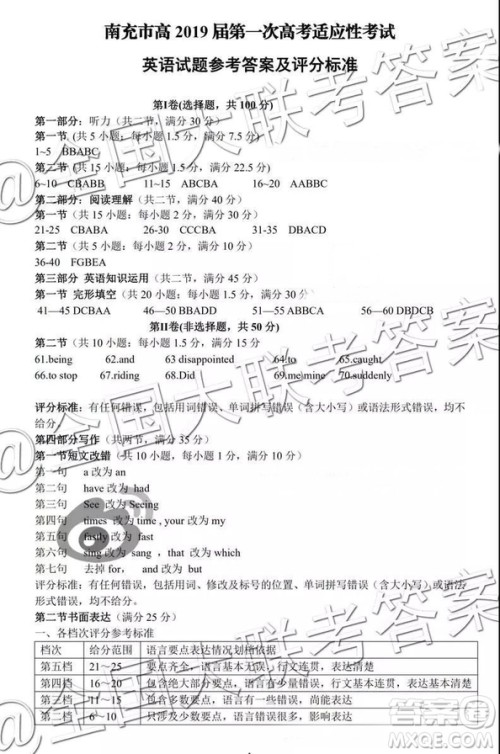 南充市高2019届第一次高考适应性考试
英语试题参考答案及评分标准
第Ⅰ卷(选择题，共100分)
第一部分：听力（共二节，满分30分）
第一节（共5小题；每小题1.5分，满分7.5分）
1~5 BBABC
第二节（共15小题；每小题1.5分，满分22.5分）
6~10 CBABB 11~15 ABCBA 16~20 AABBC
第二部分：阅读理解（共二节，满分40分）
第一节（共15小题；每小题2分，满分30分）
21-25 CBABA 26-30 CCCBA 31-35 DBACD
第二节（共5小题；每小题2分，满分10分）
36-40 FGBEA
第三部分 英语知识运用（共二节，满分45分）
第一节 完形填空（共20小题；每小题1.5分，满分30分）
41—45 DCBAA 46—50 BBADD 51—55 ABBCA 56—60 DBDCB
第Ⅱ卷(非选择题，共50分)
第二节（共10小题；每小题1.5分，满分15分
61.being 62.and 63 disappointed 64.to 65.caught
66.to stop 67.riding 68.Did 69.me\mine 70.suddenly
评分标准：有任何错误，包括用词错误、单词拼写错误（含大小写）或语法形式错误，均不
给分。
第四部分写作（共两节，满分35分）
第一节短文改错（共10小题，每小题1分，满分10分）
第一句 a改为an
第二句 have改为 had
第三句 See 改为Seeing
第四句 times 改为time, your改为my
第五句 fastly改为 fast
第六句 sing改为 sang ，that 改为which
第七句 去掉for， and 改为 but
评分标准：有任何错误，包括用词、修改及标号的位置、单词拼写（含大小写）等错误，
均不给分。
第二节书面表达（满分25分）
一、各档次评分参考标准
档次 给分范围 语言要点表达情况划档依据
第五档 21~25 要点齐全，语言基本无误，行文连贯，表达清楚
第四档 16~20 包含绝大部分要点，语言有少量错误，行文基本连贯，表达基本清楚
第三档 11~15 包含多数要点，语言有一些错误，尚能表达
第二档 6~10 只涉及少数要点，语言有很多错误，影响表达
@全国大联考答案
@全国大联考答案